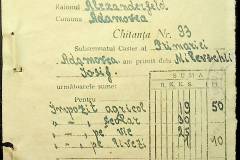 Raionul Alexanderfeld
Comuna Adamovca
Chitanța Nr. 33
Subsemnatul Casier al Primariei
Adamovca am primit dela
Iosif
următoarele sume:
SUMA
Pentru
Impozit agricol 19 50
" " școlar 90
" " pe vie 25
" " 1 10